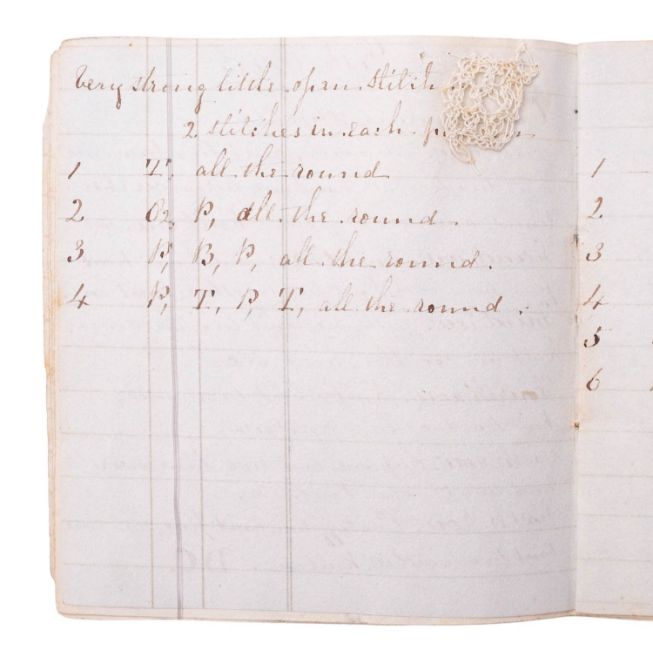 Very strong little open stitch
2 stitches in each
1 T, all the round
2 O2, P, all the round.
3 P, B, P, all the round.
4 P, T, P, T, all the round.
1
2.
3
4
5
6